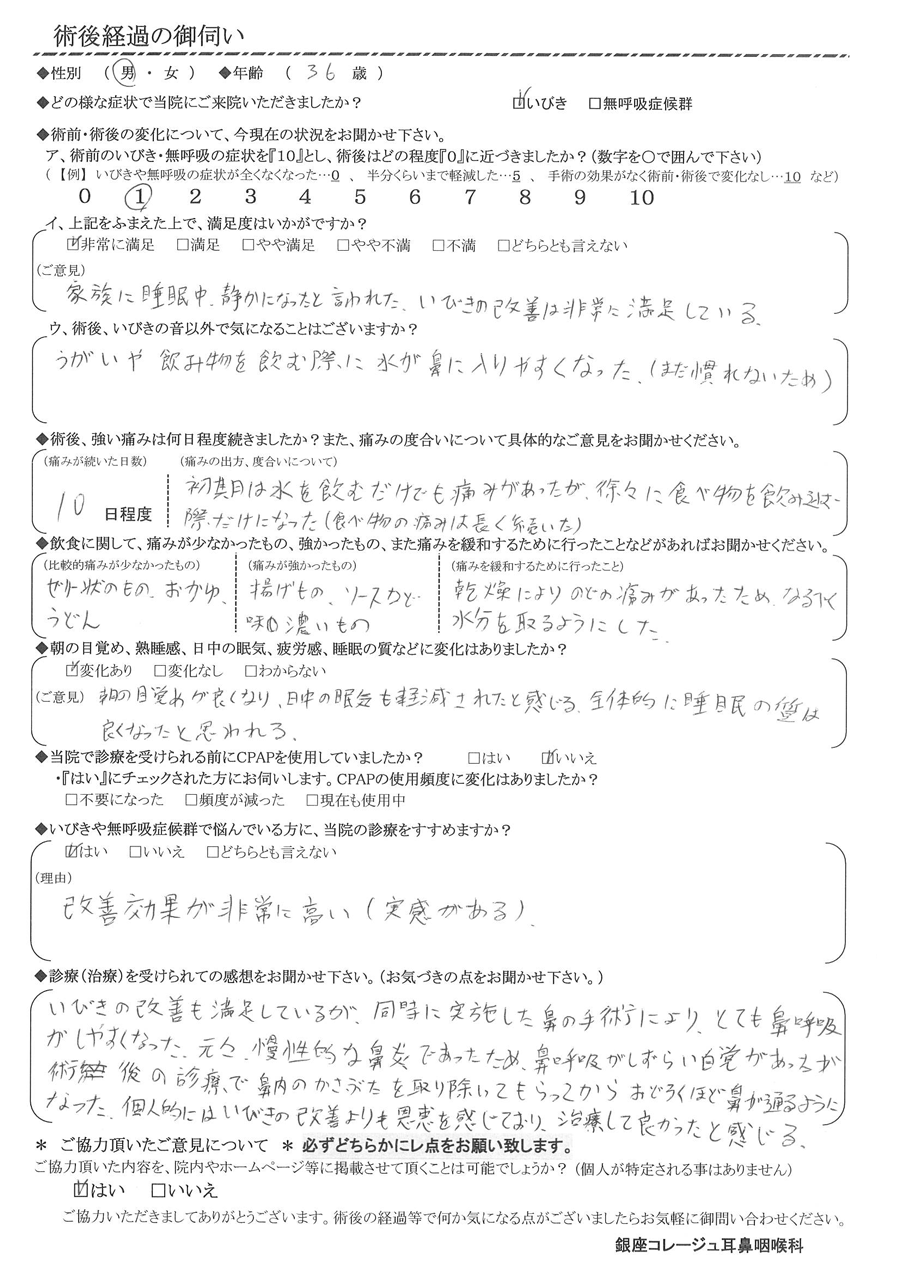 術後経過の御伺い
◆性別 ( 男 ・ 女 ) ◆年齢 ( 36 歳 )
◆どの様な症状で当院にご来院いただきましたか? ☑いびき □無呼吸症候群
◆術前・術後の変化について、今現在の状況をお聞かせ下さい。
ア、術前のいびき・無呼吸の症状を『10』とし、術後はどの程度『0』に近づきましたか?(数字を○で囲んで下さい)
( 【例】 いびきや無呼吸の症状が全くなくなった…0 、 半分くらいまで軽減した…5 、 手術の効果がなく術前・術後で変化なし…10 など)
0 1 2 3 4 5 6 7 8 9 10
イ、上記をふまえた上で、満足度はいかがですか?
☑非常に満足 □満足 □やや満足 □やや不満 □不満 □どちらとも言えない
(ご意見)
家族に睡眠中、静かになったと言われた、いびきの改善は非常に満足している。
ウ、術後、いびきの音以外で気になることはございますか?
うがいや飲み物を飲む際に水が鼻に入りやすくなった、(まだ慣れないため)
◆術後、強い痛みは何日程度続きましたか?また、痛みの度合いについて具体的なご意見をお聞かせください。
(痛みが続いた日数) (痛みの出方、度合いについて)
初期は水を飲むだけでも痛みがあったが、徐々に食べ物を飲み込む
10 日程度
際だけになった(食べ物の痛みは長く続いた)
◆飲食に関して、痛みが少なかったもの、強かったもの、また痛みを緩和するために行ったことなどがあればお聞かせください。
(比較的痛みが少なかったもの) (痛みが強かったもの) (痛みを緩和するために行ったこと)
ゼリー状のもの、おかゆ、 揚げもの、ソースカツど 乾燥によりのどの痛みがあったため、なるべく
うどん 味の濃いもの 水分を取るようにした。
◆朝の目覚め、熟睡感、日中の眠気、疲労感、睡眠の質などに変化はありましたか?
☑変化あり □変化なし □わからない
(ご意見) 朝の目覚めが良くなり、日中の眠気も軽減されたと感じる。全体的に睡眠の質は
良くなったと思われる。
◆当院で診療を受けられる前にCPAPを使用していましたか? □はい ☑いいえ
・『はい』にチェックされた方にお伺いします。CPAPの使用頻度に変化はありましたか?
□不要になった □頻度が減った □現在も使用中
◆いびきや無呼吸症候群で悩んでいる方に、当院の診療をすすめますか?
☑はい □いいえ □どちらとも言えない
(理由)
改善効果が非常に高い(実感がある)。
◆診療(治療)を受けられての感想をお聞かせ下さい。(お気づきの点をお聞かせ下さい。)
いびきの改善も満足しているが、同時に実施した鼻の手術により、とても鼻呼吸
がしやすくなった。元々、慢性的な鼻炎であったため、鼻呼吸がしずらい自覚があったが
術後の診療で鼻内のかさぶたを取り除いてもらってからおどろくほど鼻が通るように
なった。個人的にはいびきの改善よりも恩恵を感じており、治療して良かったと感じる。
＊ ご協力頂いたご意見について ＊ 必ずどちらかにレ点をお願い致します。
ご協力頂いた内容を、院内やホームページ等に掲載させて頂くことは可能でしょうか? (個人が特定される事はありません)
☑はい □いいえ
ご協力いただきましてありがとうございます。術後の経過等で何か気になる点がございましたらお気軽に御問い合わせください。
銀座コレージュ耳鼻咽喉科